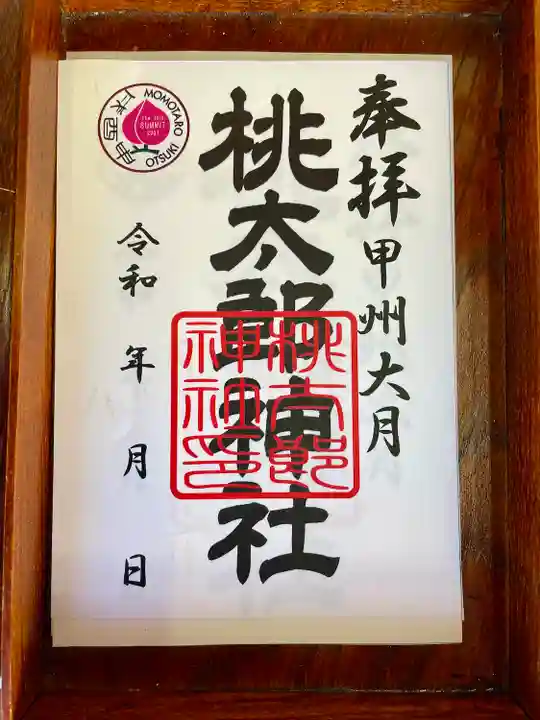 奉拝 甲州大月
桃太郎神社
桃太郎
神社印
令和 年 月 日
MOMOTARO
SUMMIT
OTSUKI